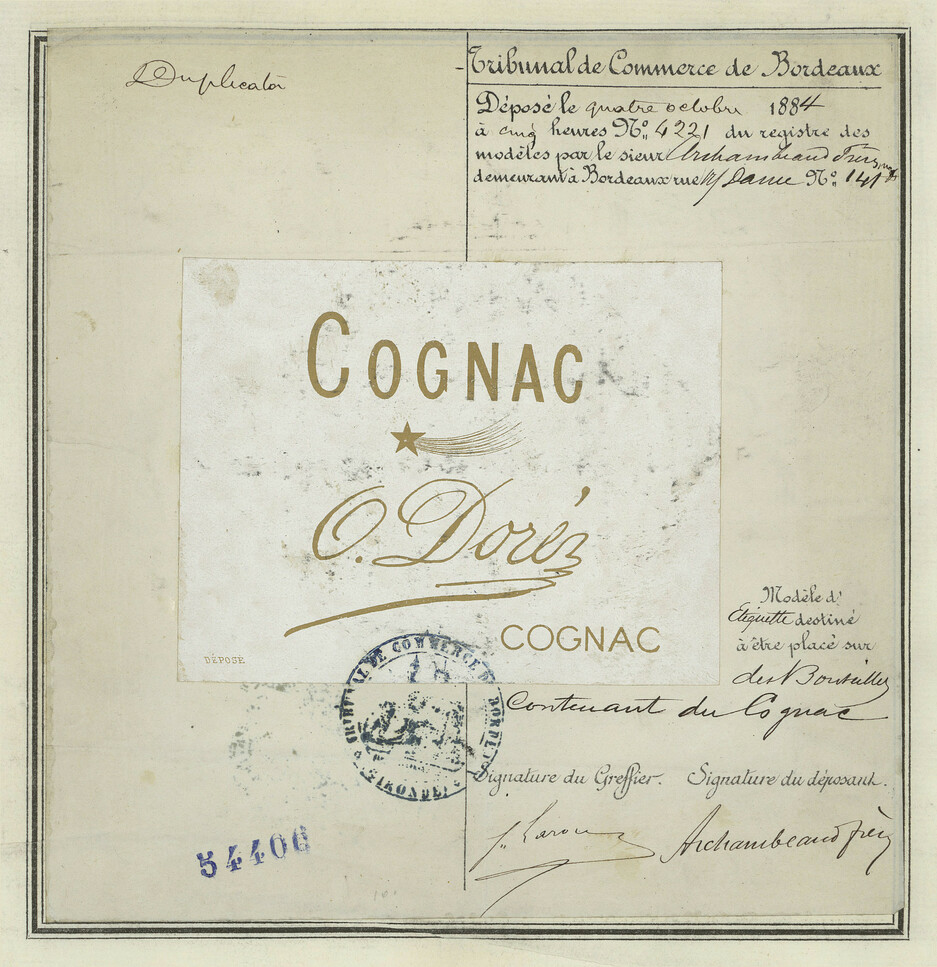 Duplicata
Tribunal de Commerce de Bordeaux
Déposé le quatre octobre 1884
à cinq heures No. 4221 du registre des
modèles par le sieur Archambeaud Frères
demeurant à Bordeaux rue Nd Dame No. 141
COGNAC
O. Doré
COGNAC
DÉPOSÉ
Modèle d'
Etiquette destiné
à être placé sur
des Bouteilles
Contenant du Cognac
TRIBUNAL DE COMMERCE DE BORDEAUX
GIRONDE
Signature du Greffier. Signature du déposant.
Archambeaud frères
54406